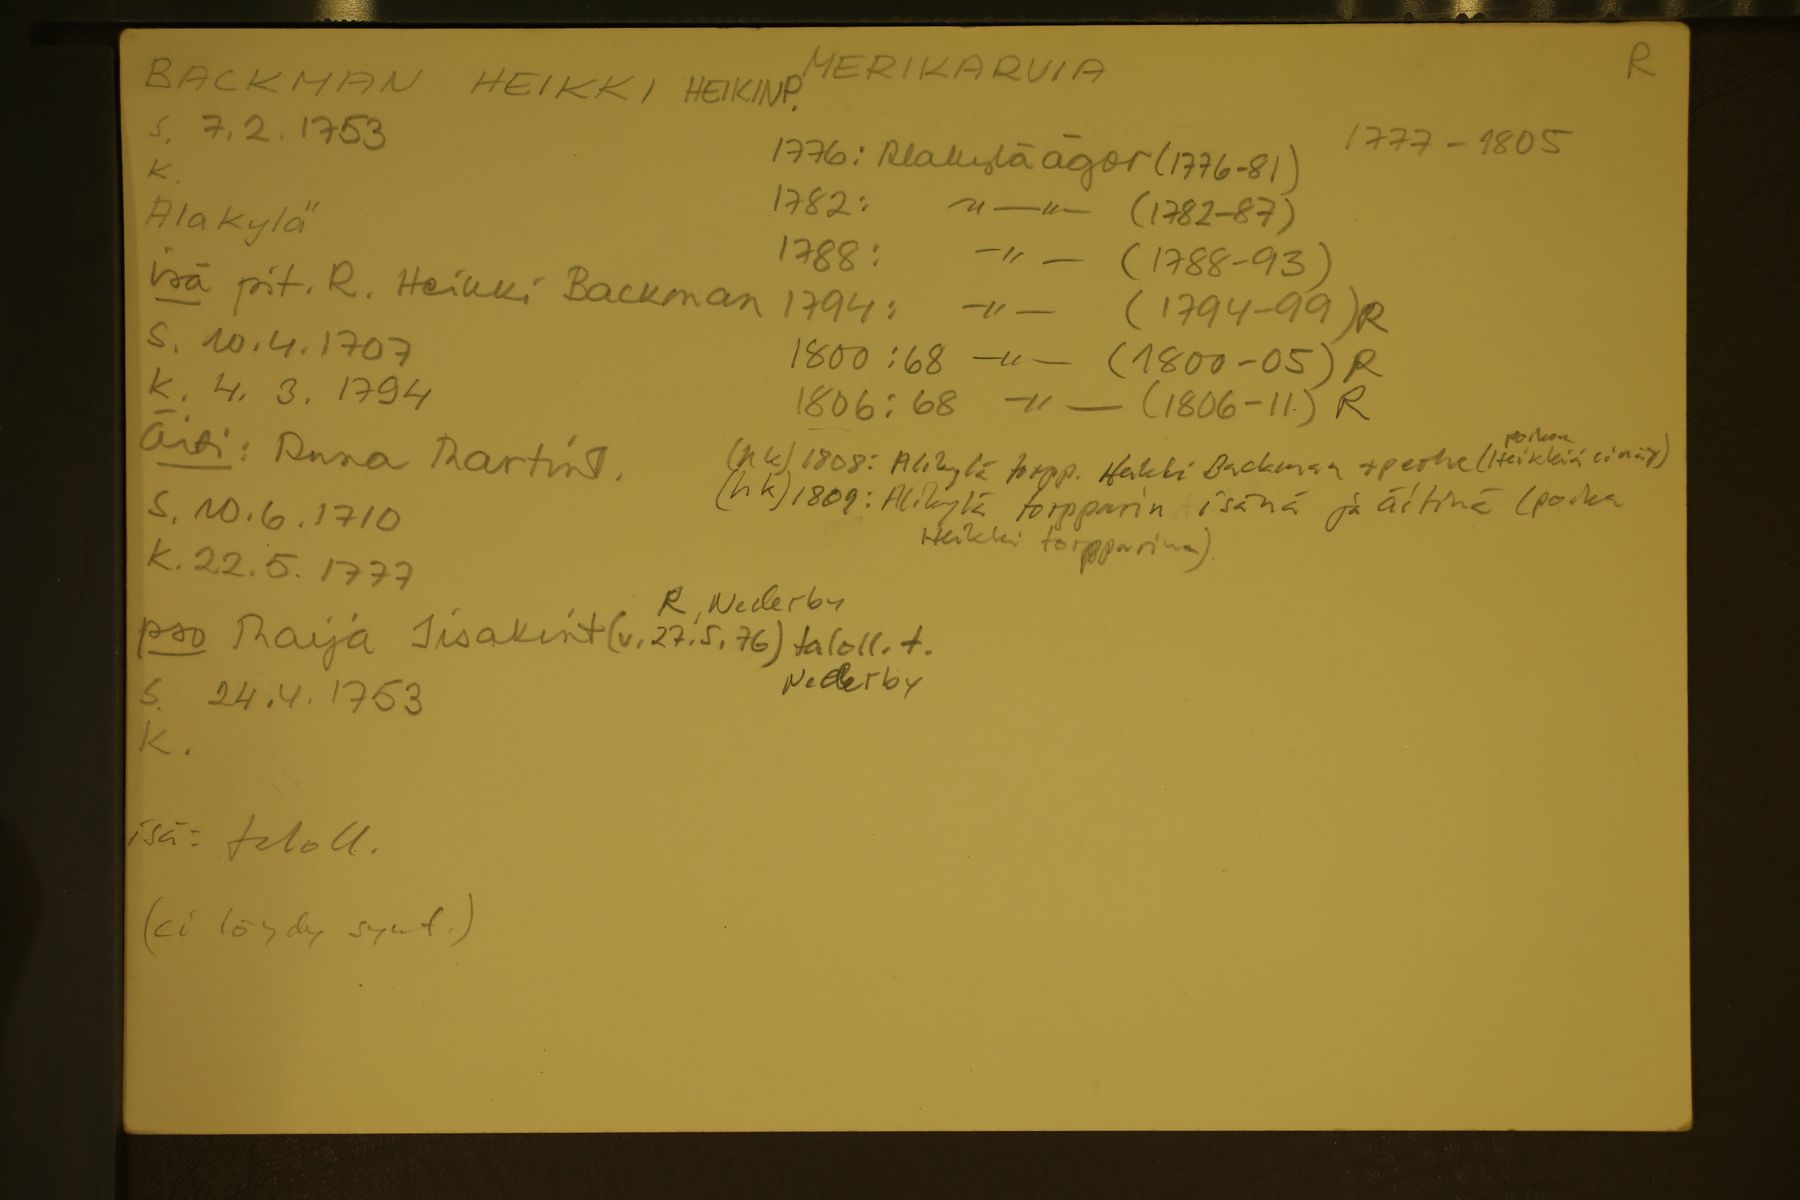 BACKMAN HEIKKI HEIKINP. MERIKARVIA R
s. 7.2.1753
k.
Alakylä
isä pit. R. Heikki Backman
s. 10.4.1707
k. 4.3.1794
Äiti: Anna Martint.
s. 10.6.1710
k. 22.5.1777
R, Nederby
pso Maija Iisakint (v. 27.5.76) taloll. t.
Nederby
s. 24.4.1753
k.
isä: taloll.
(ei löydy synt.)
1777-1805
1776: Alakylä ägor (1776-81)
1782: -"-"- (1782-87)
1788: -"- (1788-93)
1794: -"- (1794-99) R
1800:68 -"- (1800-05) R
1806:68 -"- (1806-11) R
poikaa
(hk) 1808: Alikylä torpp. Heikki Backman + perhe (Heikkiä ei näy)
(hk) 1809: Alikylä torpparin isänä ja äitinä (poika
Heikki torpparina).